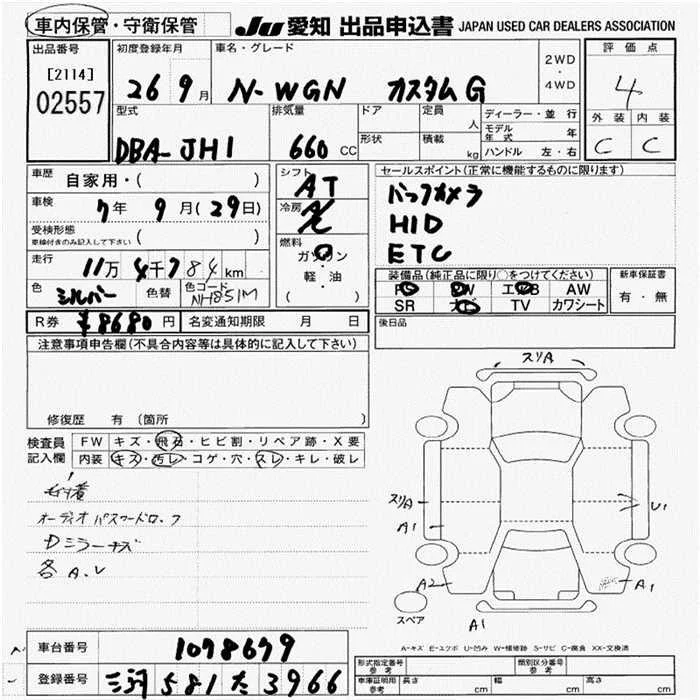 車内保管・守衛保管 JU 愛知 出品申込書 JAPAN USED CAR DEALERS ASSOCIATION
出品番号 初度登録年月 車名・グレード 2WD・4WD 評価点
[2114] 26 9月 N-WGN カスタムG 4
02557
型式 排気量 ドア 定員 人 ディーラー・並行 外装 内装
DBA-JH1 660 CC 形状 積載 kg モデル年式 年 C C
ハンドル 左・右
車歴 自家用・( ) シフト AT セールスポイント(正常に機能するものに限ります)
車検 7年 9月(29日) 冷房 バックカメラ
受検形態 車検付きのみ記入して下さい ( ) HID
燃料 ガソリン・軽・油 ( ) ETC
走行 11万 4千7 84 km 装備品(純正品に限り○をつけてください) 新車保証書
色 シルバー 色替 色コード NH851M AW 有・無
SR ナビ TV カワシート
R券 ¥8680円 名変通知期限 月 日 後日品
注意事項申告欄(不具合内容等は具体的に記入して下さい)
修復歴 有 (箇所 )
検査員記入欄 FW キズ・飛石・ヒビ割・リペア跡・X要
内装 キズ・汚レ・コゲ・穴・スレ・キレ・破レ
オーディオパスワードロック
Dミラーキズ
各A.U
スリA
スリA
A1
U1
A2
A1
A1
スペア
A-キズ E-エクボ U-凹み W-補修跡 S-サビ C-腐食 XX-交換済
車台番号 1098699
登録番号 三河 581 た 3966
形式指定番号 参考 類別区分番号 参考
車庫証明用 参考 長さ cm 幅 cm 高さ cm